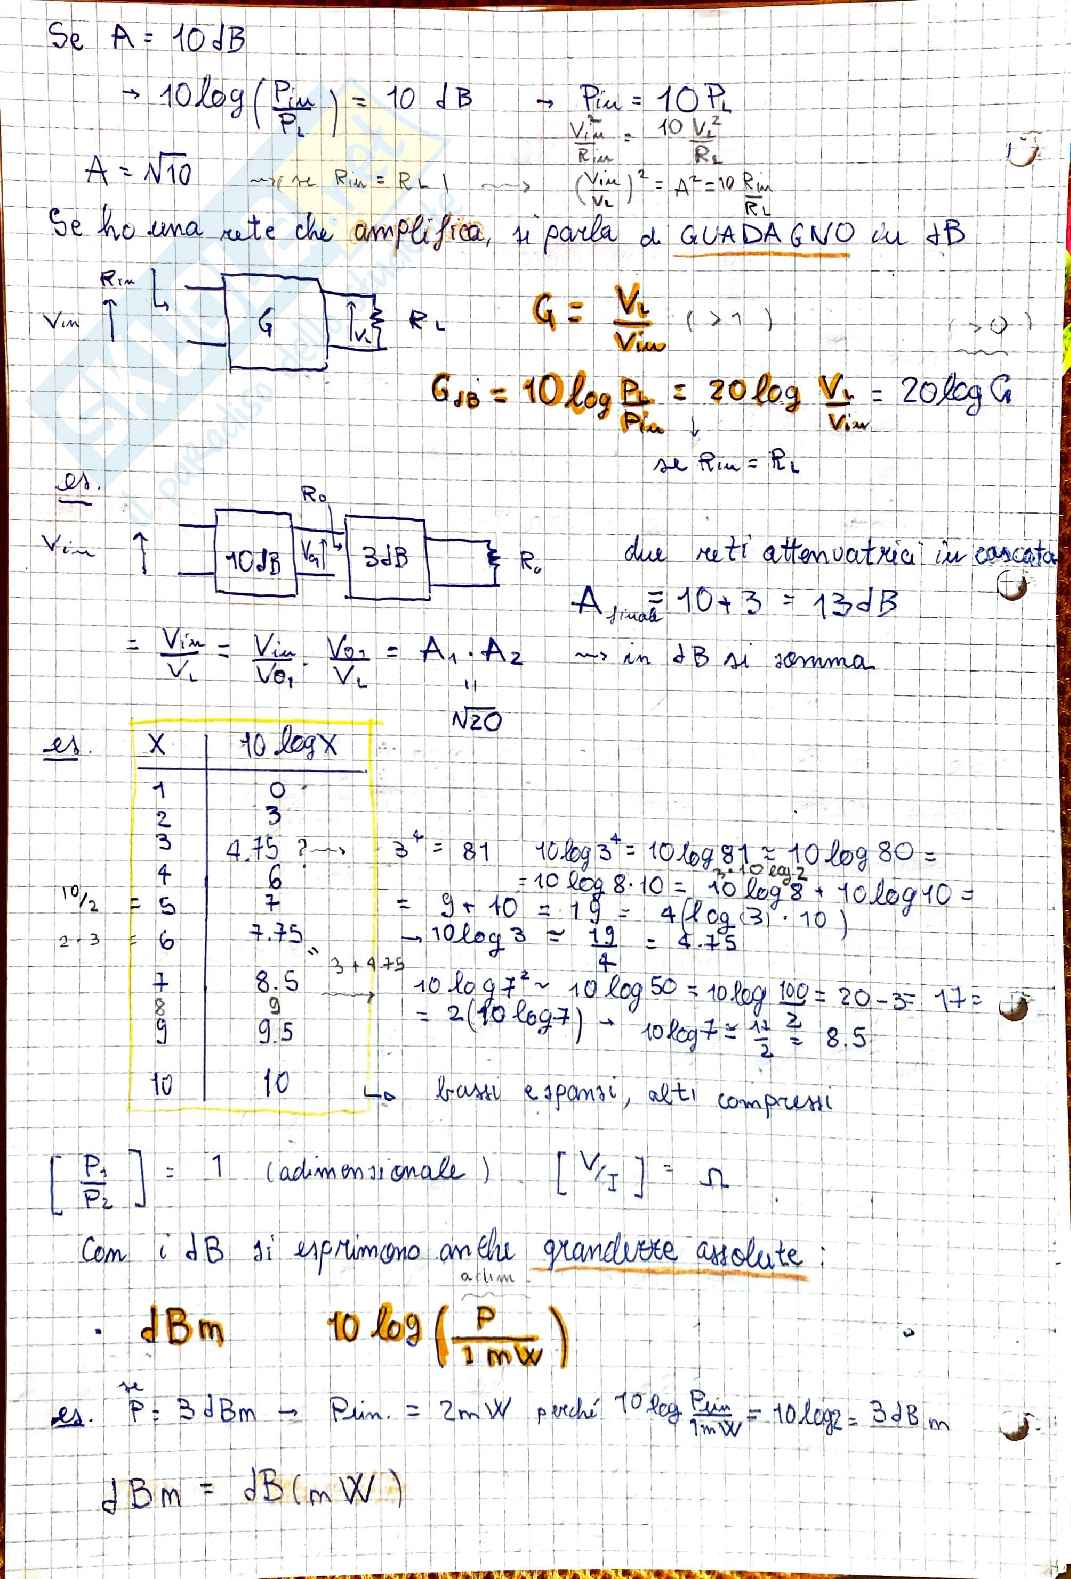 Se A = 10 dB
→ 10 log (Pin/PL) = 10 dB → Pin = 10 PL
Vin²/Rin = 10 VL²/RL
A = √10 ~→ (se Rin = RL) ~→ (Vin/VL)² = A² = 10 Rin/RL
Se ho una rete che amplifica, si parla di GUADAGNO in dB
Rin
Vin G VL RL G = VL/Vin (>1) (>0)
GdB = 10 log PL/Pin = 20 log VL/Vin = 20 log G
↓
se Rin = RL
es.
R0
Vin 10 dB V01 3 dB R0 due reti attenuatrici in cascata
A finale = 10 + 3 = 13 dB
= Vin/VL = Vin/V01 · V01/VL = A1 · A2 ~→ in dB si somma
"
√20
es. X 10 log X
1 0
2 3
3 4.75 ? ~→ 3⁴ = 81 10 log 3⁴ = 10 log 81 ≈ 10 log 80 =
3·10 log 2
4 6 = 10 log 8·10 = 10 log 8 + 10 log 10 =
10/2 = 5 7 = 9 + 10 = 19 = 4 (log(3) · 10)
2·3 = 6 7.75 → 10 log 3 ≈ 19/4 = 4.75
" 3 + 4.75
7 8.5 ~→ 10 log 7² ~ 10 log 50 = 10 log 100/2 = 20 - 3 = 17 =
8 9 = 2 (10 log 7) → 10 log 7 ≈ 17/2 = 8.5
9 9.5
10 10 ↳ bassi espansi, alti compressi
[P1/P2] = 1 (adimensionale) [V/I] = Ω
Con i dB si esprimono anche grandezze assolute :
adim.
· dBm 10 log (P/1 mW)
se
es. P = 3 dBm → Plin. = 2 mW perché 10 log Plin/1mW = 10 log 2 = 3 dBm
dBm = dB(mW)